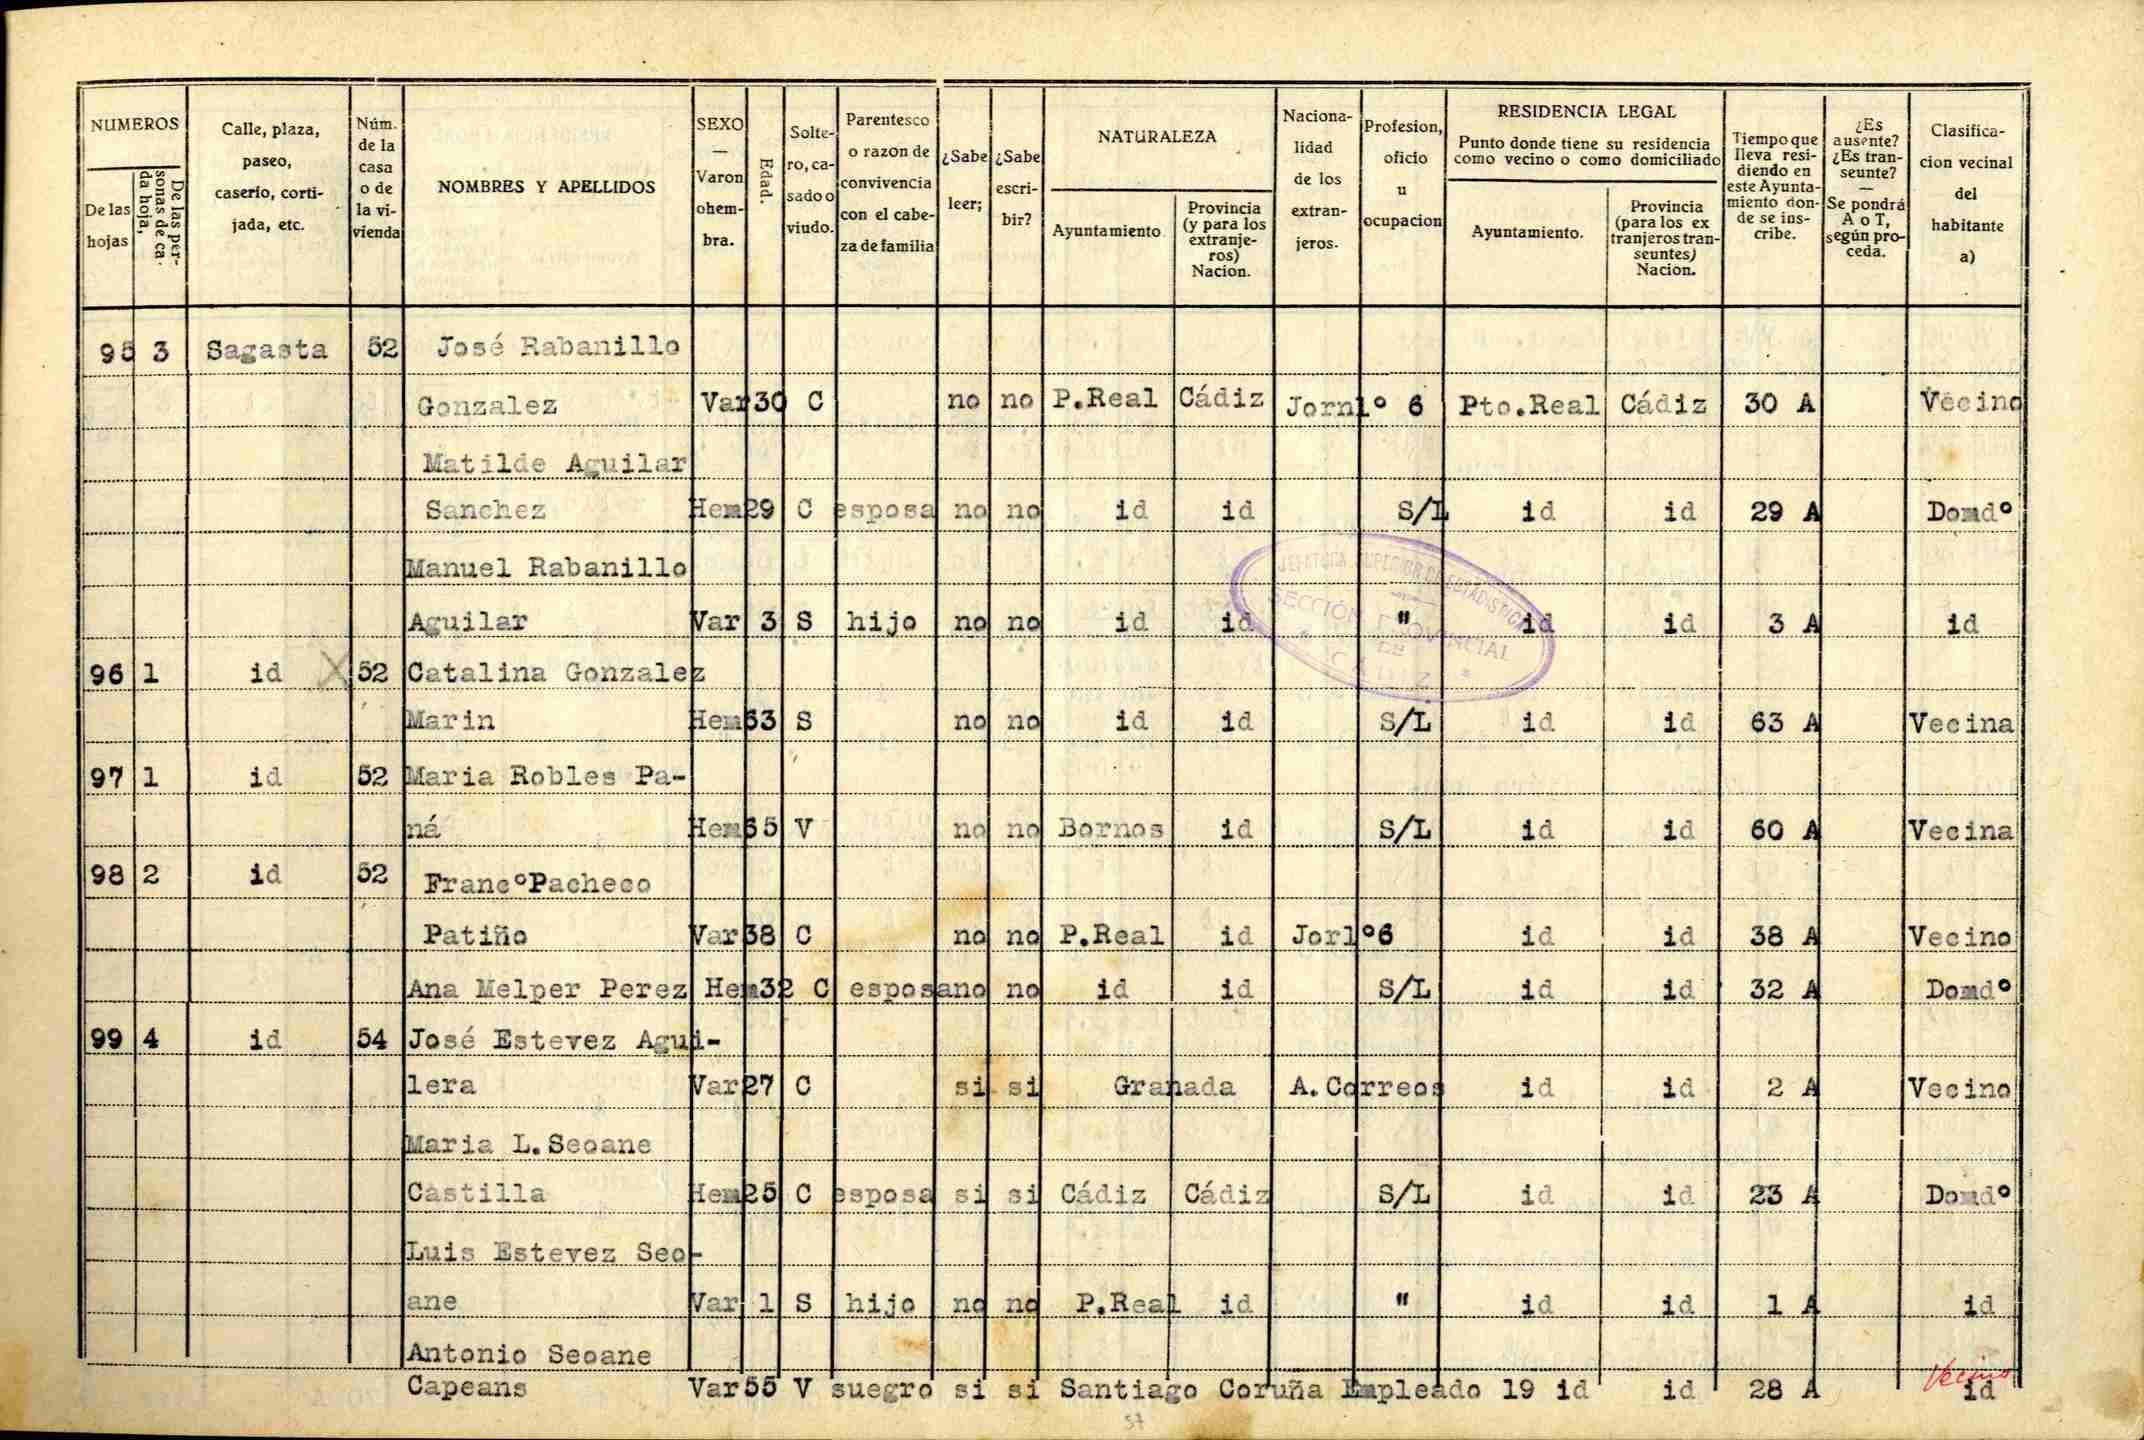 NUMEROS
De las hojas
De las personas de cada hoja,
Calle, plaza, paseo, caserio, cortijada, etc.
Núm. de la casa o de la vivienda
NOMBRES Y APELLIDOS
SEXO — Varon ohembra.
Edad.
Soltero, casado o viudo.
Parentesco o razon de convivencia con el cabeza de familia
¿Sabe leer;
¿Sabe escribir?
NATURALEZA
Ayuntamiento
Provincia (y para los extranjeros) Nacion.
Nacionalidad de los extranjeros.
Profesion, oficio u ocupacion
RESIDENCIA LEGAL
Punto donde tiene su residencia como vecino o como domiciliado
Ayuntamiento.
Provincia (para los extranjeros transeuntes) Nacion.
Tiempo que lleva residiendo en este Ayuntamiento donde se inscribe.
¿Es ausente? ¿Es transeunte? — Se pondrá A o T, según proceda.
Clasificacion vecinal del habitante a)
95 3 Sagasta 52 José Rabanillo
Gonzalez Var 30 C no no P.Real Cádiz Jornlº 6 Pto.Real Cádiz 30 A Vecino
Matilde Aguilar
Sanchez Hem 29 C esposa no no id id S/L id id 29 A Domdº
Manuel Rabanillo
Aguilar Var 3 S hijo no no id id " id id 3 A id
96 1 id X 52 Catalina Gonzalez
Marin Hem 63 S no no id id S/L id id 63 A Vecina
97 1 id 52 Maria Robles Pa-
ná Hem 65 V no no Bornos id S/L id id 60 A Vecina
98 2 id 52 FrancºPacheco
Patiño Var 38 C no no P.Real id Jorlº6 id id 38 A Vecino
Ana Melper Perez Hem 32 C esposa no no id id S/L id id 32 A Domdº
99 4 id 54 José Estevez Agui-
lera Var 27 C si si Granada A.Correos id id 2 A Vecino
Maria L.Seoane
Castilla Hem 25 C esposa si si Cádiz Cádiz S/L id id 23 A Domdº
Luis Estevez Seo-
ane Var 1 S hijo no no P.Real id " id id 1 A id
Antonio Seoane
Capeans Var 55 V suegro si si Santiago Coruña Empleado 19 id id 28 A id
Vecino
JEFATURA SUPERIOR DE ESTADISTICA
SECCIÓN PROVINCIAL
DE
CADIZ
37